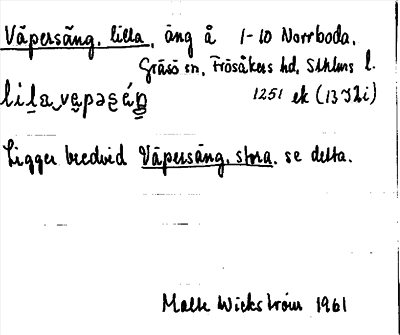 Väpersäng, lilla, äng å 1-10 Norrboda,
Gräsö sn, Frösåkers hd, Sthlms l.
1251 ek (13 Jhi)
Ligger bredvid Väpersäng, stora, se detta.
Malte Wickström 1961